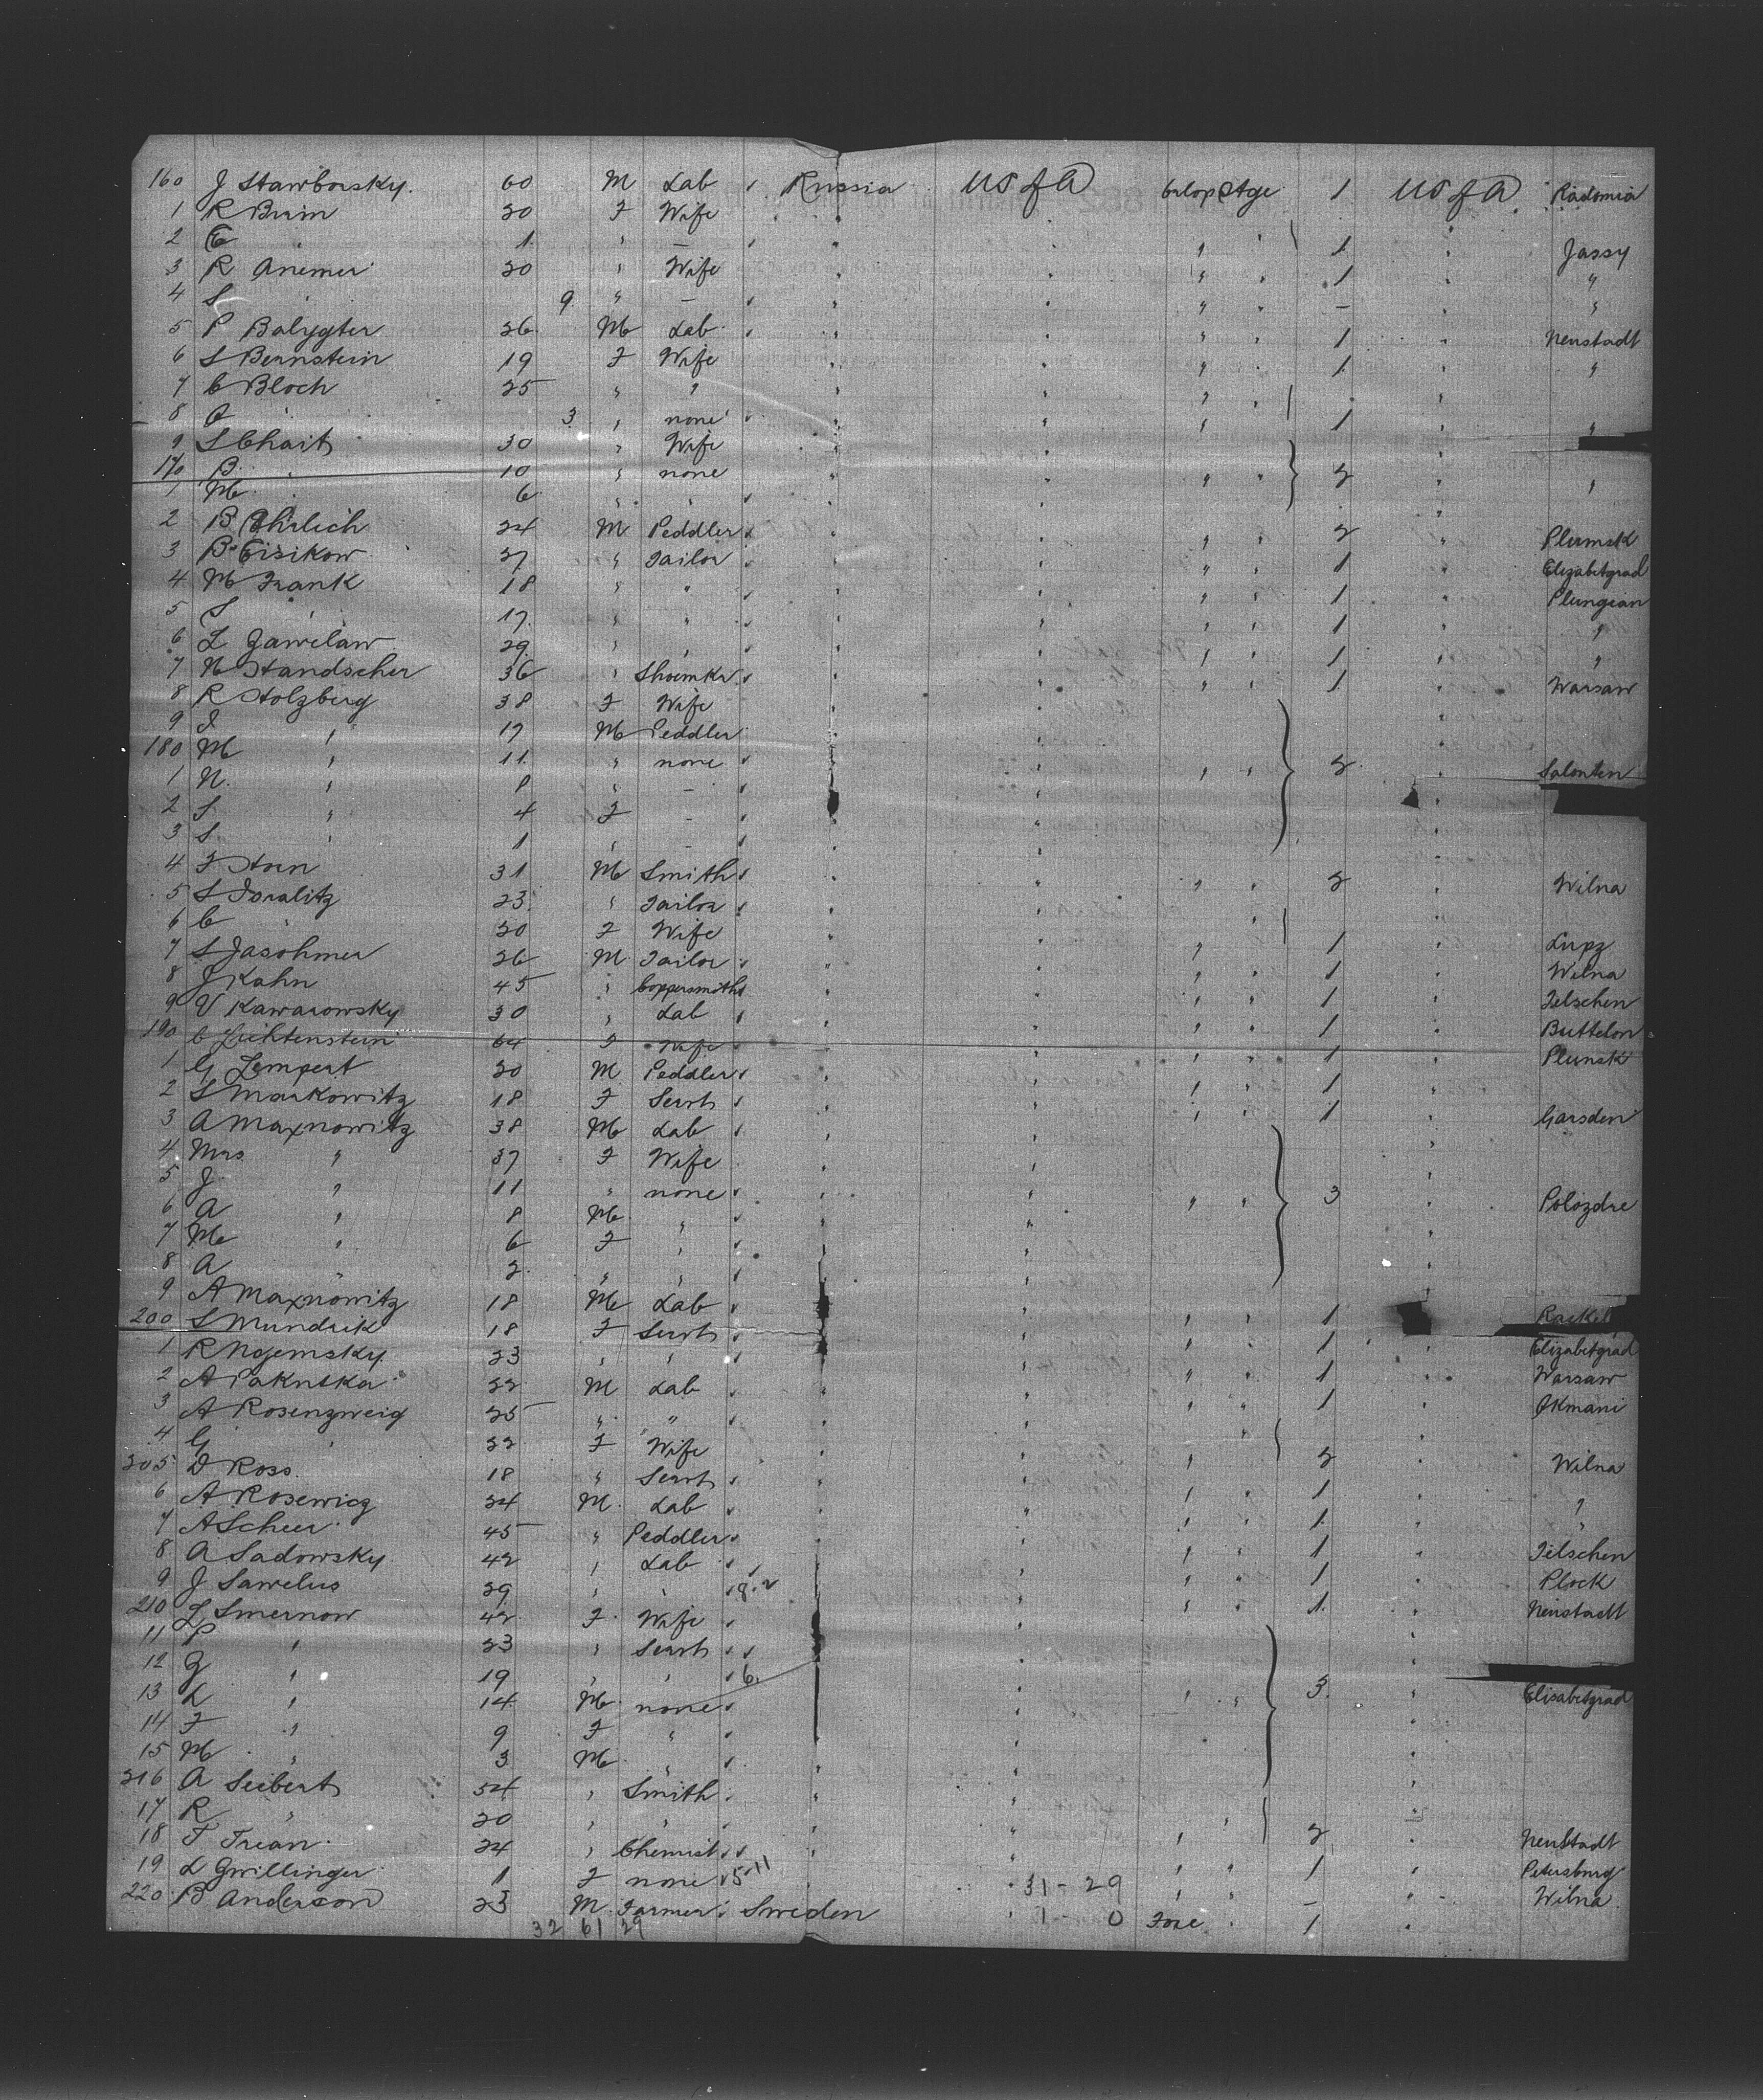 160 J Stawborsky. 60 M Lab Russia US of A 1 US of A Radomia
1 R Brin 20 F Wife
2 E " 1 " — " 1 Jassy
3 R Anemer 20 " Wife " 1 "
4 S " 9 " — " — "
5 P Balygter 26 M Lab " 1 Neustadt
6 S Bernstein 19 F Wife " 1 "
7 C Bloch 25 " " "
8 O " 3 " none " 1 "
9 S Chait 30 " Wife
170 B " 10 " none " 2 "
1 M " 6 " "
2 B Ehrlich 24 M Peddler " 2 Plumsk
3 B Eisikow 27 " Tailor " 1 Elizabetgrad
4 M Frank 18 " " " 1 Plungian
5 S " 17 " " " 1 "
6 L Gawelaw 29 " " " 1 "
7 N Handscher 36 " Shoemkr " 1 Warsaw
8 R Holzberg 38 F Wife
9 J " 17 M Peddler
180 M " 11 " none " 2 Salonten
1 N. " 8 " —
2 S. " 4 F —
3 S. " 1 " —
4 F Horn 31 M Smith " 2 Wilna
5 S Isralitz 23 " Tailor "
6 C " 20 F Wife " 1 Lupz
7 S Jasohmer 26 M Tailor " 1 Wilna
8 J Kahn 45 " Coppersmith " 1 Telschen
9 V Kawarowsky 30 " Lab " 1 Buttelon
190 C Lichtenstein 64 F Wife " 1 Plunsk
1 G Lempert 20 M Peddler " 1
2 S Markowitz 18 F Servt " 1 Garsden
3 A Maxnowitz 38 M Lab
4 Mrs " 37 F Wife
5 J " 11 " none " 3 Polozdre
6 A " 8 M "
7 M " 6 F "
8 A " 2 " "
9 A Maxnowitz 18 M Lab " 1
200 S Mundrik 18 F Servt " 1 Elizabetgrad
1 R Nojemsky 23 " " " 1 Warsaw
2 A Pakutka 22 M Lab " 1 Okmani
3 A Rosenzweig 25 " " "
4 G " 22 F Wife " 2 Wilna
205 D Ross 18 " Servt " 1 "
6 A Rosewicz 24 M Lab " 1 "
7 A Scheer 45 " Peddler " 1 Telschen
8 A Sadowsky 42 " Lab " 1 Plock
9 J Sawelus 29 " " " 1 Neustadt
210 L Smernow 42 F Wife
11 P " 23 " Servt
12 G " 19 " " 6 " 3 Elisabetgrad
13 L " 14 M none
14 F " 9 F "
15 M " 3 M "
216 A Seibert 54 " Smith
17 R " 20 " " " 2 Neustadt
18 T Trean 24 " Chemist " 1 Petersburg
19 L Gwillinger 1 F none 5 11 31-29 " — Wilna
220 B Anderson 23 M Farmer Sweden 1 - 0 Fore " 1
32 61 29